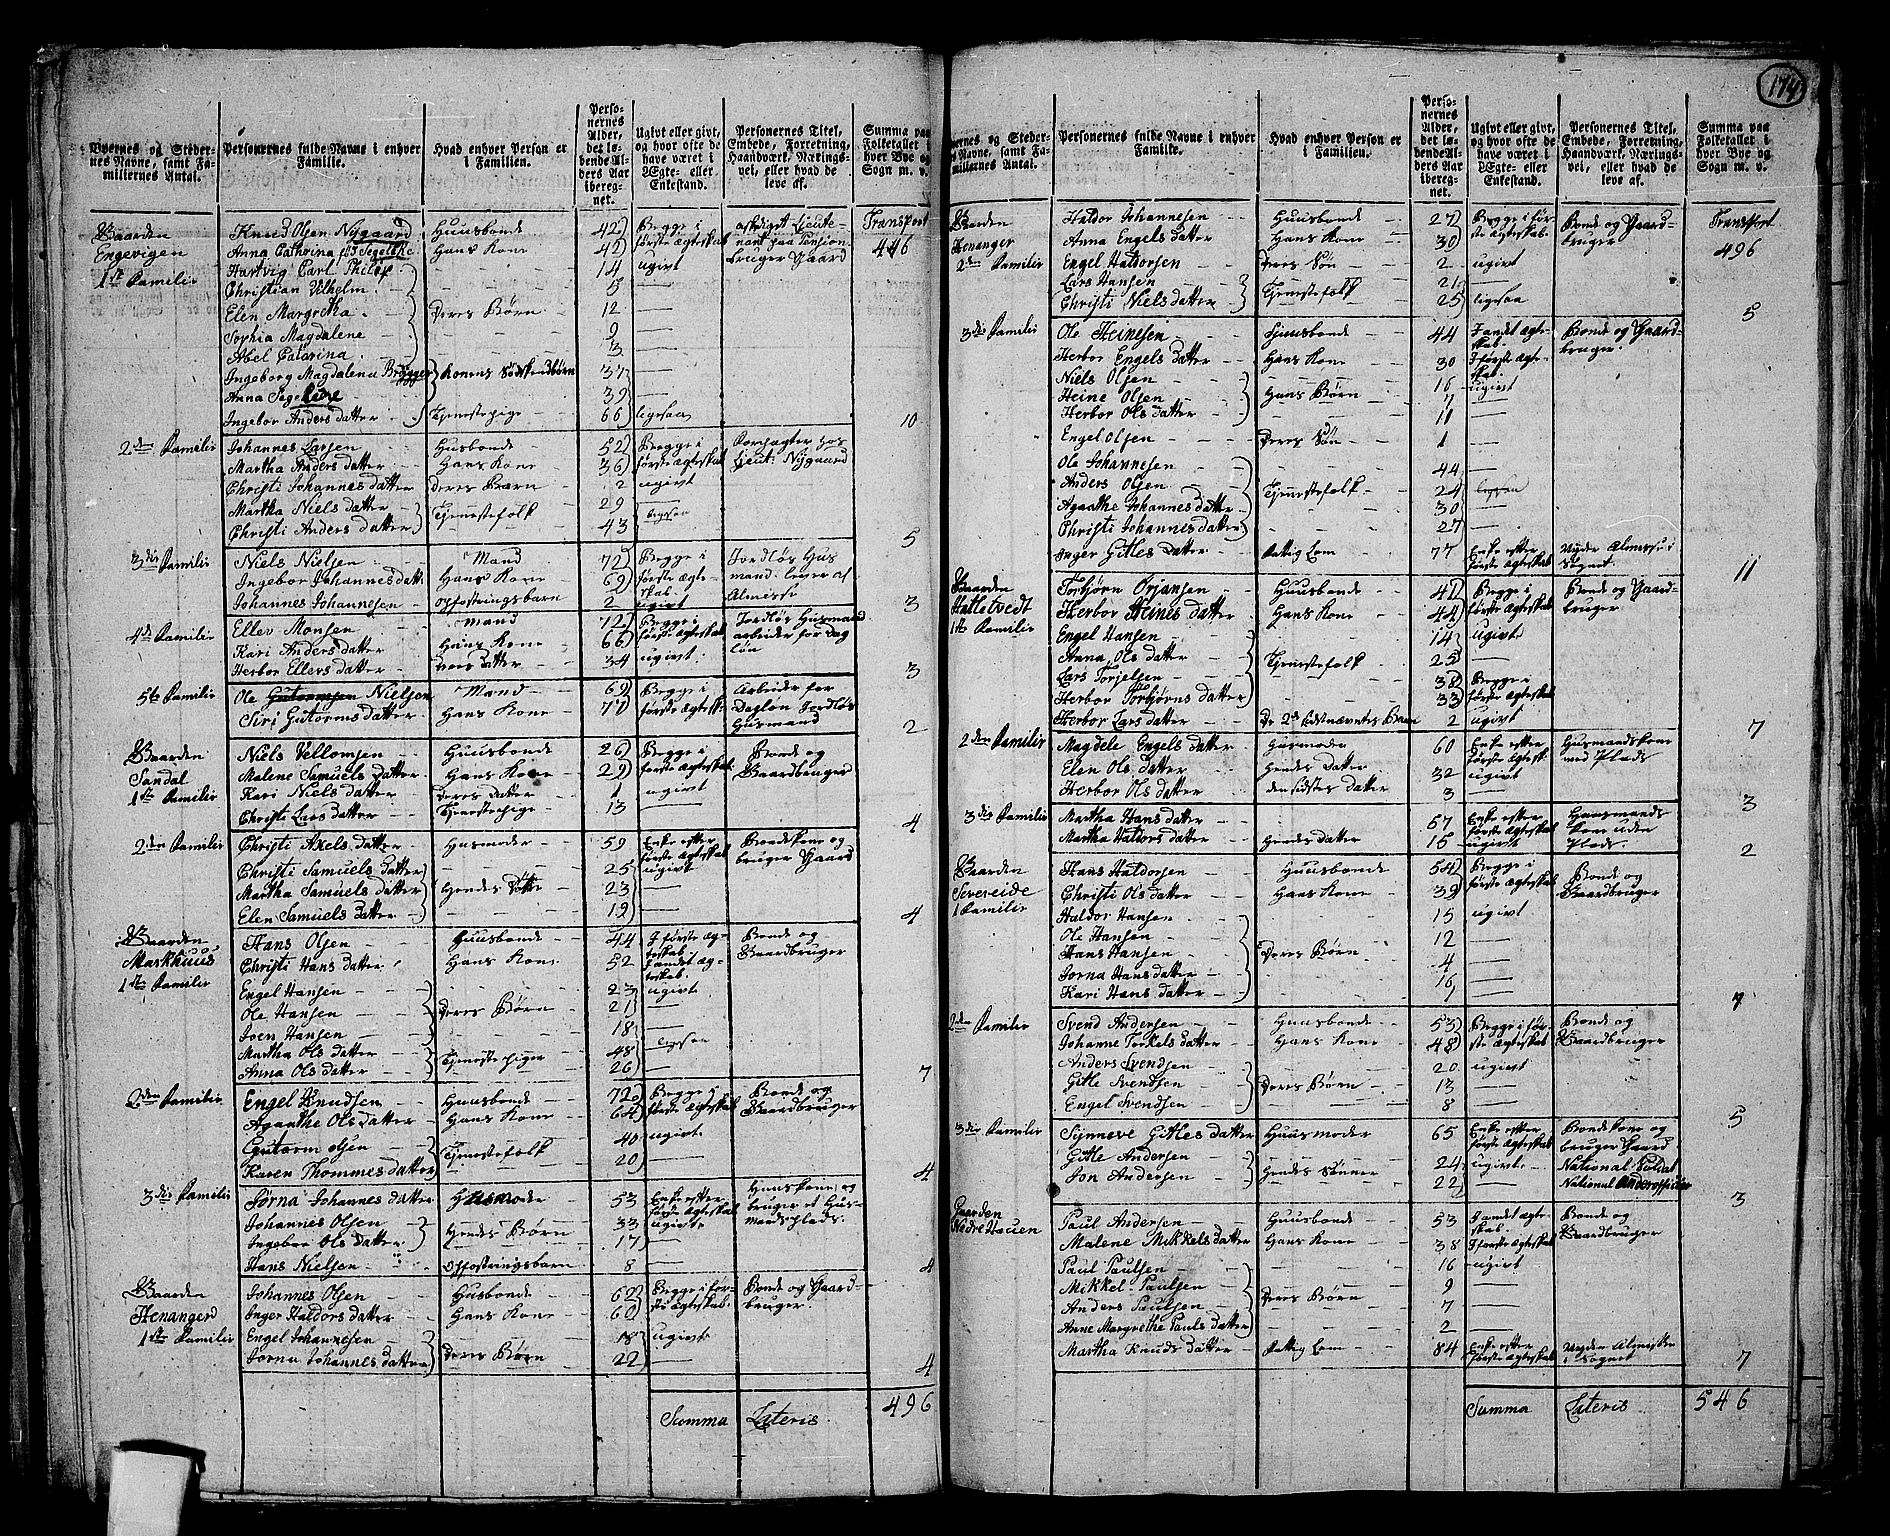 174
Byernes og Stedernes Navne, samt Familiernes Antal.
Personernes fulde Navne i enhver Familie.
Hvad enhver Person er i Familien.
Personernes Alder, det løbende Alders Aar iberegnet.
Ugivt eller givt, og hvor ofte de have været i Ægte- eller Enkestand.
Personernes Titel, Embede, Forretning, Haandværk, Næringsvei, eller hvad de leve af.
Summa paa Folketallet i hver Bye og Sogn m. v.
Gaarden Engevigen 1ste Familie
Knud Olsen Nygaard Huusbonde 42 Begge i første Ægteskab afskediget Lieutenant paa Pension bruger Gaard Transport 446
Anna Cathrina Hans Kone 42
Hartvig Carl Philip 14 ugivt
Christian Vilhelm 5
Elen Margretha Deres Børn 12
Sophia Magdalene 9
Abel Catarina 3
Ingeborg Magdalena Brygger Konens Södskendbörn 37
Anna 39
Ingebor Anders datter Tjenestepige 66 ligesaa
10
2den Familie Johannes Larsen Husbonde 52 Begge i første Ægteskab hos Lieut. Nygaard
Martha Anders datter Hans Kone 36
Christi Johannes datter Deres Barn 2 ugivt
Martha Niels datter Tjenestefolk 29 ligesaa
Christi Anders datter 43
5
3die Familie Niels Nielsen Mand 72 Begge i første Ægteskab Jordløs Husmand lever af Almisse
Ingebor Johannes datt. Hans Kone 69
Johannes Johannesen Opfostringsbarn 2 ugivt
3
4de Familie Ellev Monsen Mand 72 Begge i første Ægteskab Jordløs Husmand arbeider for Dagløn
Kari Anders datter Hans Kone 66
Herbor Ellevs datter Deres datter 34 ugivt
3
5te Familie Ole Nielsen Mand 69 Begge i første Ægtesk. Arbeider for Dagløn Jordløs Husmand
Siri Gutorms datter Hans Kone 70
2
Gaarden Sandal 1ste Familie
Niels Vellomsen Huusbonde 26 Begge i første Ægteskab Bonde og Gaardbruger
Malene Samuels datter Hans Kone 29
Kari Niels datter Deres datter 1 ugivt
Christi Lars datter Tjenestepige 13
4
2den Familie Christi Axels datter Husmoder 59 Enke efter første Ægteskab Bondekone og bruger Gaard
Christi Samuels datter 25 ugivt
Martha Samuels datter Hendes Døtre 23
Elen Samuels datter 19
4
Gaarden Markhuus 1ste Familie
Hans Olsen Huusbonde 44 I første Ægteskab Bonde og Gaardbruger
Christi Hans datter Hans Kone 52 I andet Ægteskab
Engel Hansen 23 ugivt
Ole Hansen Deres Børn 21
Joen Hansen 18
Martha Ols datter Tjenestepiger 48 ligesaa
Anna Ols datter 26
7
2den Familie Engel Knudsen Huusbonde 72 Begge i første Ægteskab Bonde og Gaardbruger
Aganthe Ols datter Hans Kone 64
Gutorm Olsen Tjenestefolk 40 ugivt
Karen Thommes datter 20
4
3die Familie Jorna Johannes datter Husmoder 53 Enke efter første Ægteskab Huuskone og bruger et Husmandsplads.
Johannes Olsen Hendes Børn 33 ugivt
Ingebor Ols datter 17
Hans Nielsen Opfostringsbarn 8
4
Gaarden Henangerd 1ste Familie
Johannes Olsen Husbonde 62 Begge i første Ægteskab. Bonde og Gaardbruger.
Inger Haldors datter Hans Kone 60
Engel Johannesen Deres Børn 18 ugivt
Jorna Johannes datter 22
4
Summa Lateris 496
Byernes og Stedernes Navne, samt Familiernes Antal.
Personernes fulde Navne i enhver Familie.
Hvad enhver Person er i Familien.
Personernes Alder, det løbende Alders Aar iberegnet.
Ugivt eller givt, og hvor ofte de have været i Ægte- eller Enkestand.
Personernes Titel, Embede, Forretning, Haandværk, Næringsvei, eller hvad de leve af.
Summa paa Folketallet i hver Bye og Sogn m. v.
Gaarden Henanger 2den Familie
Haldor Johannesen Huusbonde 27 Begge i første Ægteskab. Bonde og Gaardbruger Transport 496
Anna Engels datter Hans Kone 30
Engel Haldorsen Deres Søn 2 ugivt
Lars Hansen Tjenestefolk 21
Christi Niels datter 25 ligesaa
5
3die Familie Ole Heinesen Huusbonde 44 I andet Ægteskab. Bonde og Gaardbruger.
Herbor Engels datter Hans Kone 30 I første Ægteskab.
Niels Olsen 16 ugivt
Heine Olsen Hans Børn 7
Herbor Ols datter 11
Engel Olsen Deres Søn 1
Ole Johannesen 44
Anders Olsen Tjenestefolk 24 ligesaa
Agaathe Johannes datter 30
Christi Johannes datter 27
Inger Gitles datter Fattig Lem 77 Enke efter første Ægteskab Nyder Almisse i Sognet.
11
Gaarden Halletvedt 1ste Familie
Torbjørn Orjansen Huusbonde 41 Begge i første Ægteskab Bonde og Gaardbruger
Herbor Heines datter Hans Kone 44
Engel Hansen 14 ugivt
Anna Ols datter Tjenestefolk 25
Lars Torjelsen 38 Begge i første Ægteskab
Herbor Torbjørns datter 33
Herbor Lars datter De 2de sidstnævntes Barn 2 ugivt
7
2den Familie Magdele Engels datter Husmoder 60 Enke efter første Ægtesk. Husmandskone med Plads
Elen Ols datter Hendes datter 32 ugivt
Herbor Ols datter den sidstes datter 3
3
3die Familie Martha Hans datter 67 Enke efter første Ægteskab Huusmandskone uden Plads.
Martha Haldors datter Hendes datter 15 ugivt
2
Gaarden Severeide 1 Familie
Hans Haldorsen Huusbonde 54 Begge i første Ægteskab Bonde og Gaardbruger
Christi Ols datter Hans Kone 39
Haldor Hansen 15 ugivt
Ole Hansen 12
Hans Hansen Deres Børn 4
Jorna Hans datter 16
Kari Hans datter 7
7
2den Familie Svend Andersen Huusbonde 53 Begge i første Ægteskab Bonde og Gaardbruger
Johanne Torkels datter Hans Kone 48
Anders Svendsen 20 ugivt
Gitle Svendsen Deres Børn 13
Engel Svendsen 8
5
3die Familie Synneve Gitles datter Huusmoder 65 Enke efter første Ægteskab Bondekone og bruger Gaard
Gitle Andersen Hendes Sønner 24 ugivt National Soldat
Jon Andersen 22 National Underofficier
3
Gaarden Nedre Hauen
Paul Andersen Huusbonde 53 I andet Ægteskab. Bonde og Gaardbruger
Malene Mikkels datter Hans Kone 38 I første Ægteskab
Paul Paulsen 16 ugivt
Mikkel Paulsen Deres Børn 9
Anders Paulsen 7
Anne Margrethe Pauls datter 2
Martha Knuds datter Fattig Lem 84 Enke efter første Ægteskab Nyder Almisse i Sognet
7
Summa Lateris 546